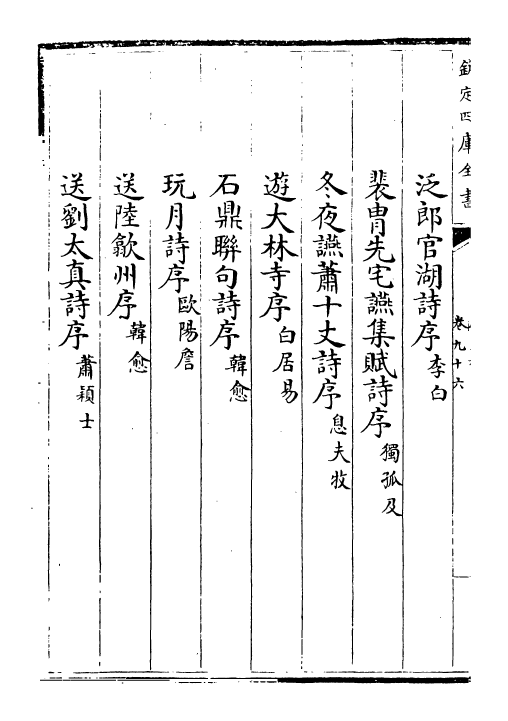 欽定四庫全書
卷九十六
泛郎官湖詩序 李白
裴胄先宅讌集賦詩序 獨孤及
冬夜讌蕭十丈詩序 息夫牧
遊大林寺序 白居易
石鼎聯句詩序 韓愈
玩月詩序 歐陽詹
送陸歙州序 韓愈
送劉太真詩序 蕭穎士